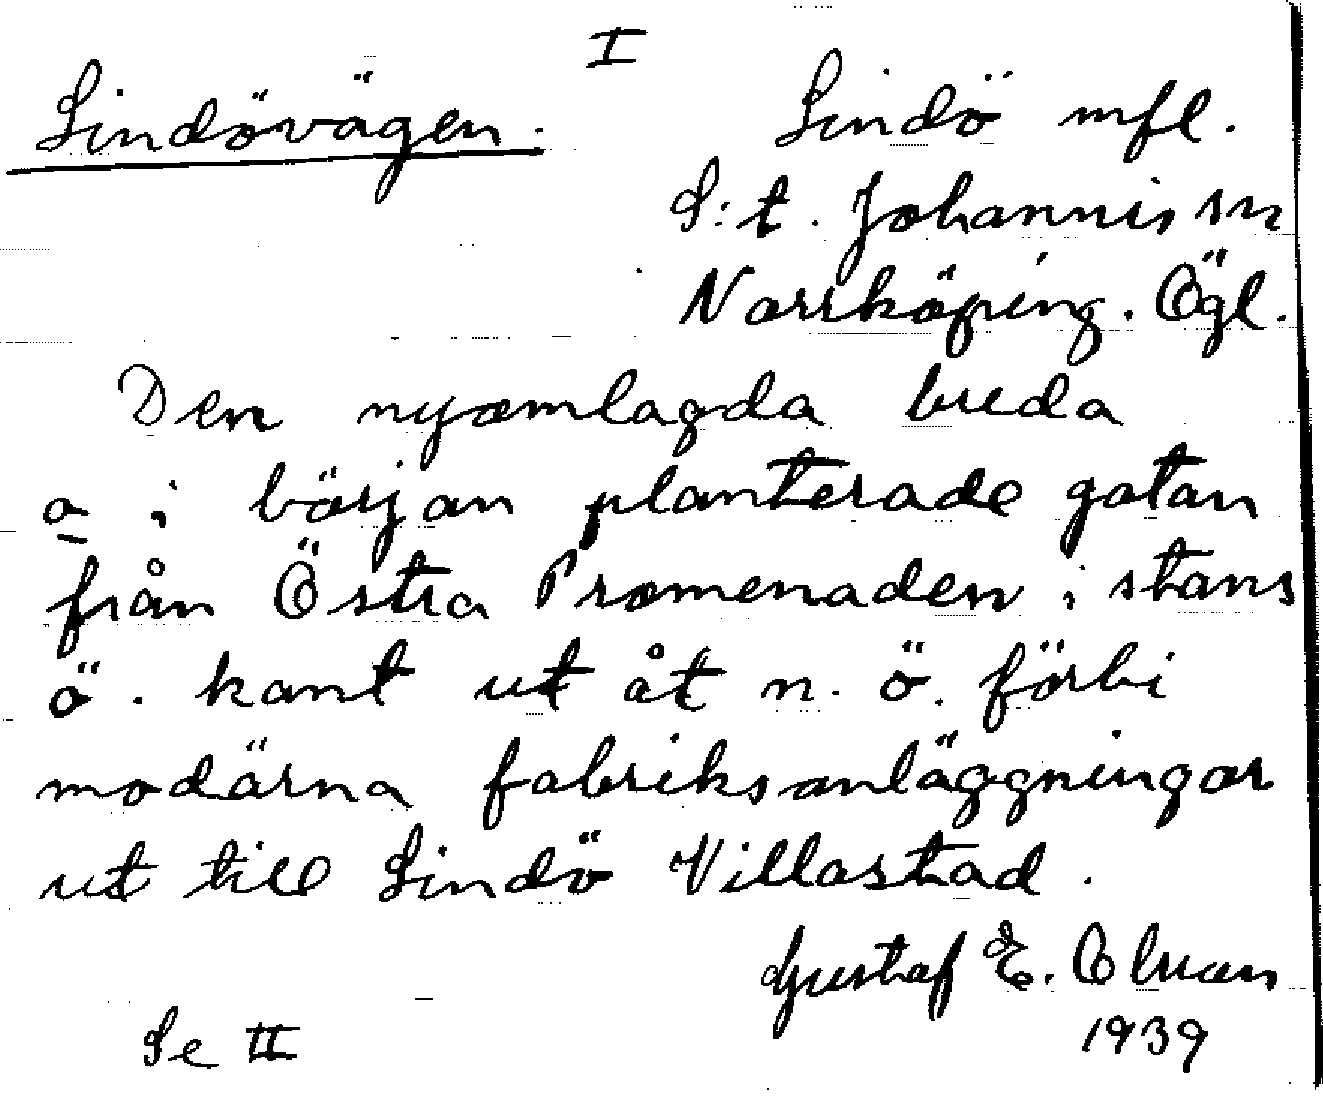 I
Lindövägen. Lindö mfl.
S:t. Johannis sn
Norrköping. Ögl.
Den nyomlagda breda
o i början planterade gatan
från Östra Promenaden i stans
ö. kant ut åt n. ö. förbi
modärna fabriksanläggningar
ut till Lindö Villastad.
Gustaf E.
Se II 1939